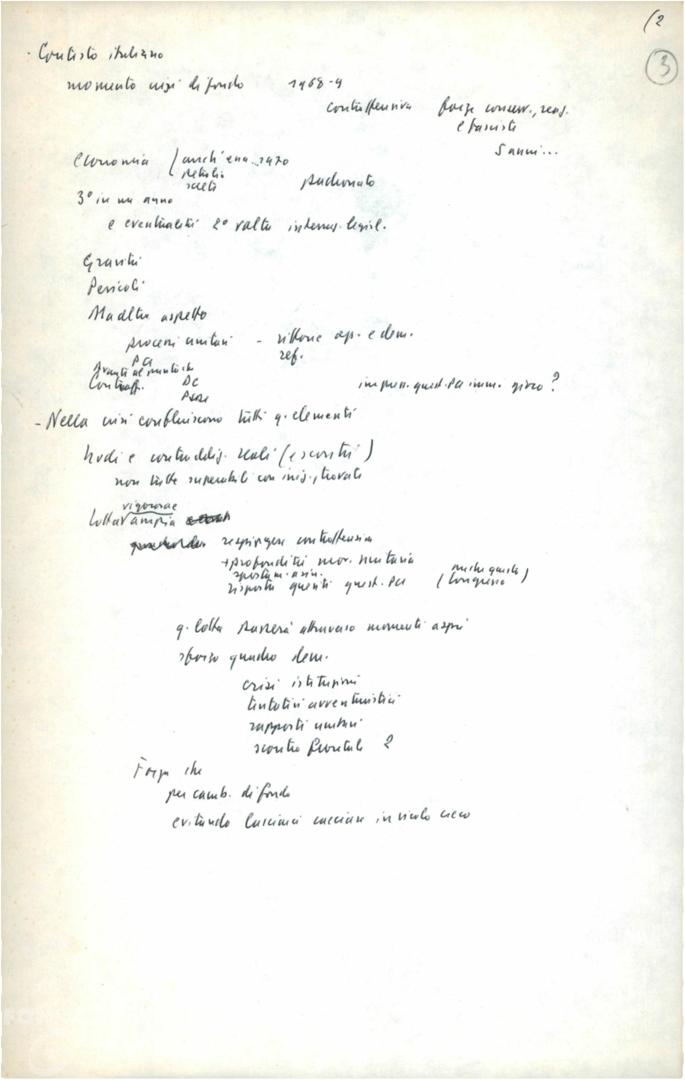 (2
3
- Contesto italiano
momento crisi di fondo 1968-9
controffensiva forze conserv., reaz.
e fasciste
5 anni...
economia
padronato
3° in un anno
e eventualità 2° volta interruz. legisl.
Gravità
Pericoli
Ma altro aspetto
processi unitari - vittorie op. e dem.
ref.
PCI
Controff. DC
PSI
impost. quest. PCI imm. gioco?
- Nella crisi confluiscono tutti q. elementi
Nodi e contraddiz. reali (e scontri)
non tutte superabili con iniz., trovate
vigorosa e
Lotta ampia
respingere controffensiva
+ profondità mov. unitario
spostam. a sin.
risposta quesiti quest. PCI (anche questo
Congresso)
q. lotta passerà attraverso momenti aspri
sforzo quadro dem.
crisi istituzioni
tentativi avventuristici
rapporti unitari
scontro frontale ?
Forza che
per camb. di fondo
evitando lasciarci cacciare in vicolo cieco